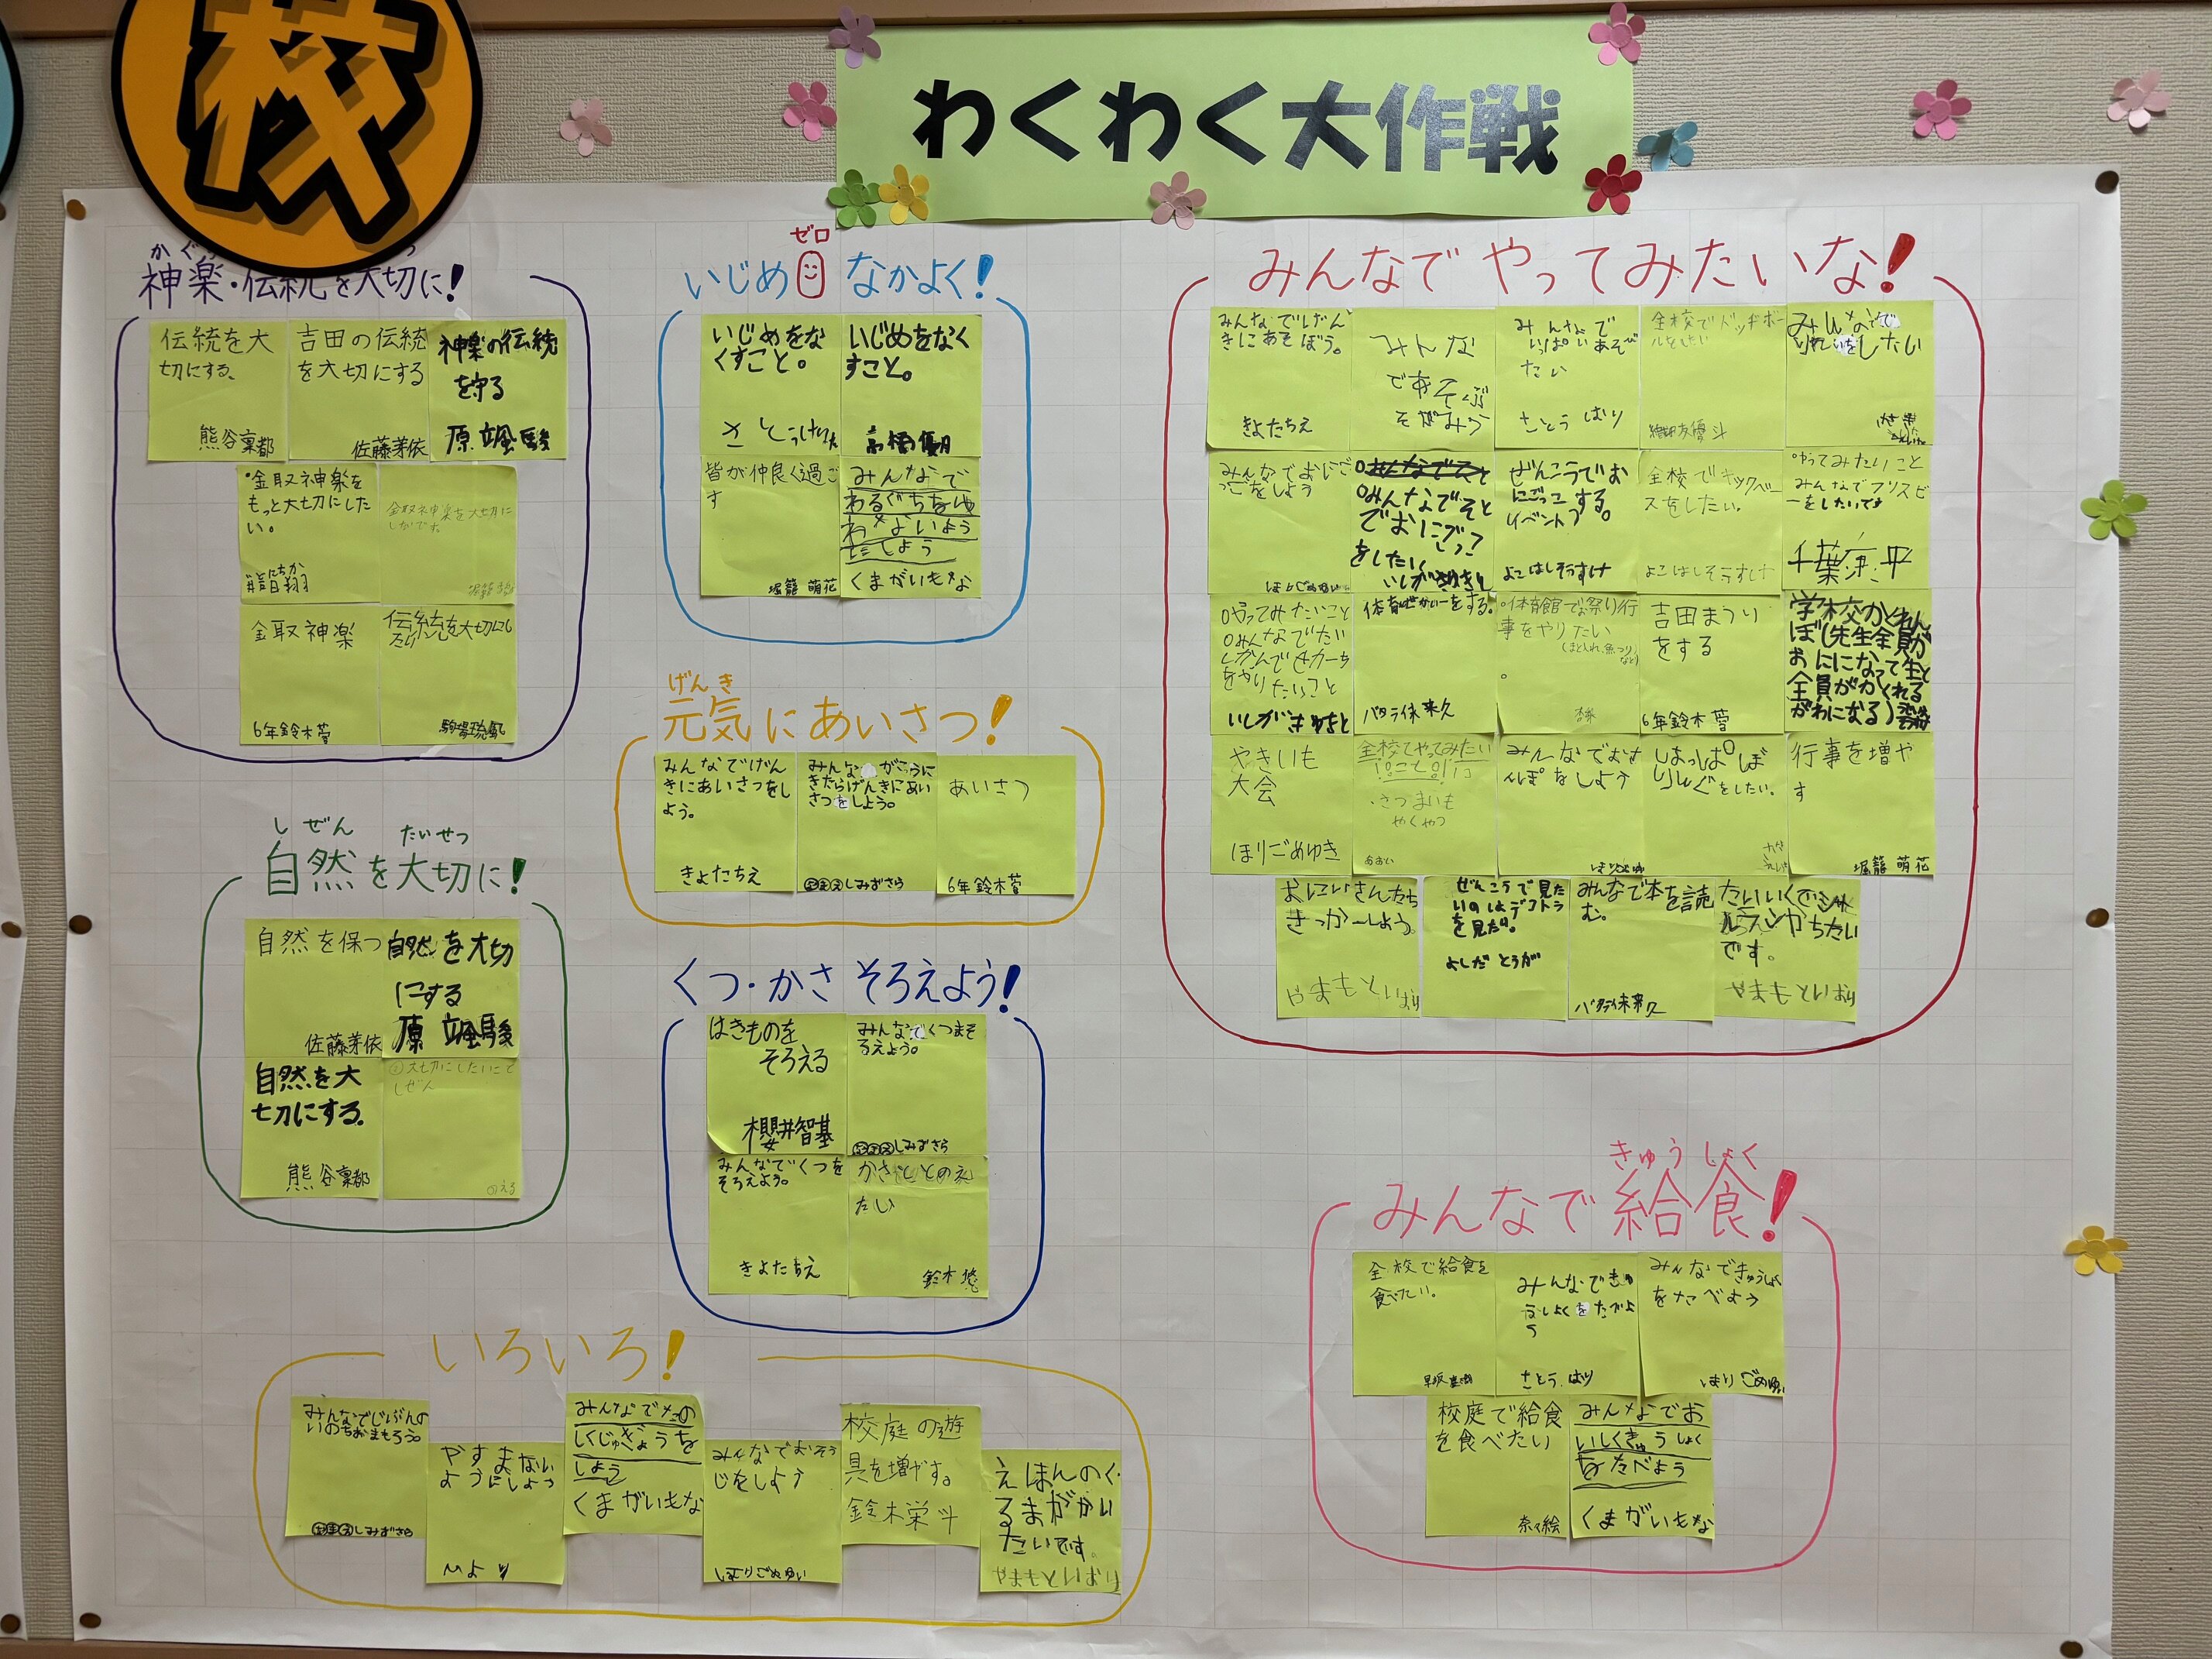 校
わくわく大作戦
神楽・伝統を大切に!
伝統を大
切にする。
熊谷稟都
吉田の伝統
を大切にする
佐藤芽依
神楽の伝統
を守る
原 颯駿
・金取神楽を
もっと大切にした
い。
金取神楽を大切に
金取神楽
6年鈴木菅
伝統を大切にし
ゼロ
いじめ0 なかよく!
いじめをな
くすこと。
いじめをなく
すこと。
高橋優月
皆が仲良く過ご
す
堀籠 萌花
みんなで
わるぐちをゆ
わないよう
にしよう
くまがいもな
げんき
元気にあいさつ!
みんなでげん
きにあいさつをし
よう。
きよたちえ
みんな がっこうに
きたらげんきにあい
さつをしよう。
しみずさら
あいさつ
6年鈴木菅
しぜん たいせつ
自然を大切に!
自然を保つ
佐藤芽依
自然を大切
にする
原 颯駿
自然を大
切にする。
熊谷稟都
大切にしたいこと
しぜん
くつ・かさ そろえよう!
はきものを
そろえる
櫻井智基
みんなでくつをそ
ろえよう。
しみずさら
みんなでくつを
そろえよう。
きよたちえ
かさをととのえ
たい
鈴木悠
いろいろ!
みんなでじぶんの
いのちおまもろう。
しみずさら
やすまない
ようにしよう
ひより
みんなでたの
しくじゅぎょうを
しよう
くまがいもな
みんなでおそう
じをしよう
ほりごめゆい
校庭の遊
具を増やす。
鈴木栄斗
えほんのく
るまがかい
たいです。
みんなで やってみたいな!
みんなでげん
きにあそぼう。
きよたちえ
みんな
であそぶ
みんなで
いっぱいあそび
たい
さとう はり
全校でドッチボー
ルをしたい
みんなで
りれいをしたい
みんなでおにご
っこをしよう
○みんなでそと
でおにごっこ
をしたい
ぜんこうでお
にごっこする
イベント
よこはしそうすけ
全校でキックベー
スをしたい。
よこはしそうすけ
○やってみたいこと
みんなでフリスビ
ーをしたいです
○やってみたいこと
○みんなでたい
くかんでサッカーを
をやりたいこと
体育でサッカーをする。
パタライ未来久
・体育館でお祭り行
事をやりたい
(まと入れ、魚つり、
など)
吉田まつり
をする
6年鈴木菅
学校かくれん
ぼ(先生全員が
おにになって生と
全員がかくれる
がわになる)
やきいも
大会
ほりごめゆき
全校でやってみたい
こと
・さつまいも
やくやつ
あおい
みんなでおさ
んぽをしよう
しっぽ
をしたい。
行事を増や
す
堀籠 萌花
おにいさんたち
さっかーしよう。
やまもといぱり
ぜんこうで見た
いのはデコトラ
を見た。
よしだ とうが
みんなで本を読
む。
パタライ未来久
たいいくでシャト
ルランやちたい
です。
やまもといぱり
きゅうしょく
みんなで給食!
全校で給食を
食べたい。
みんなできゅ
うしょくをたべよ
う
さとう はり
みんなできゅうしょく
をたべよう
ほりごめゆい
校庭で給食
を食べたい
奈々絵
みんなでお
いしくきゅうしょく
をたべよう
くまがいもな